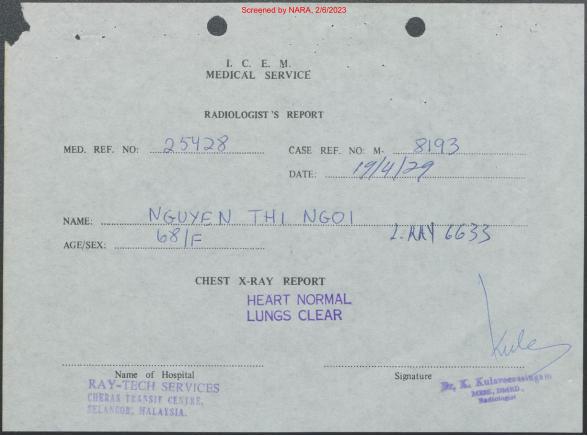 Screened by NARA, 2/6/2023
I. C. E. M.
MEDICAL SERVICE
RADIOLOGIST'S REPORT
MED. REF. NO: 25428
CASE REF. NO: M- 8193
DATE: 19/4/29
NAME: NGUYEN THI NGOI
AGE/SEX: 68/F
2. MAY 6633
CHEST X-RAY REPORT
HEART NORMAL
LUNGS CLEAR
Name of Hospital
Signature
RAY-TECH SERVICES
CHERAS TRANSIT CENTRE,
SELANGOR, MALAYSIA.
Dr. K. Kulaveerasingam
MBBS, DMRD.
Radiologist